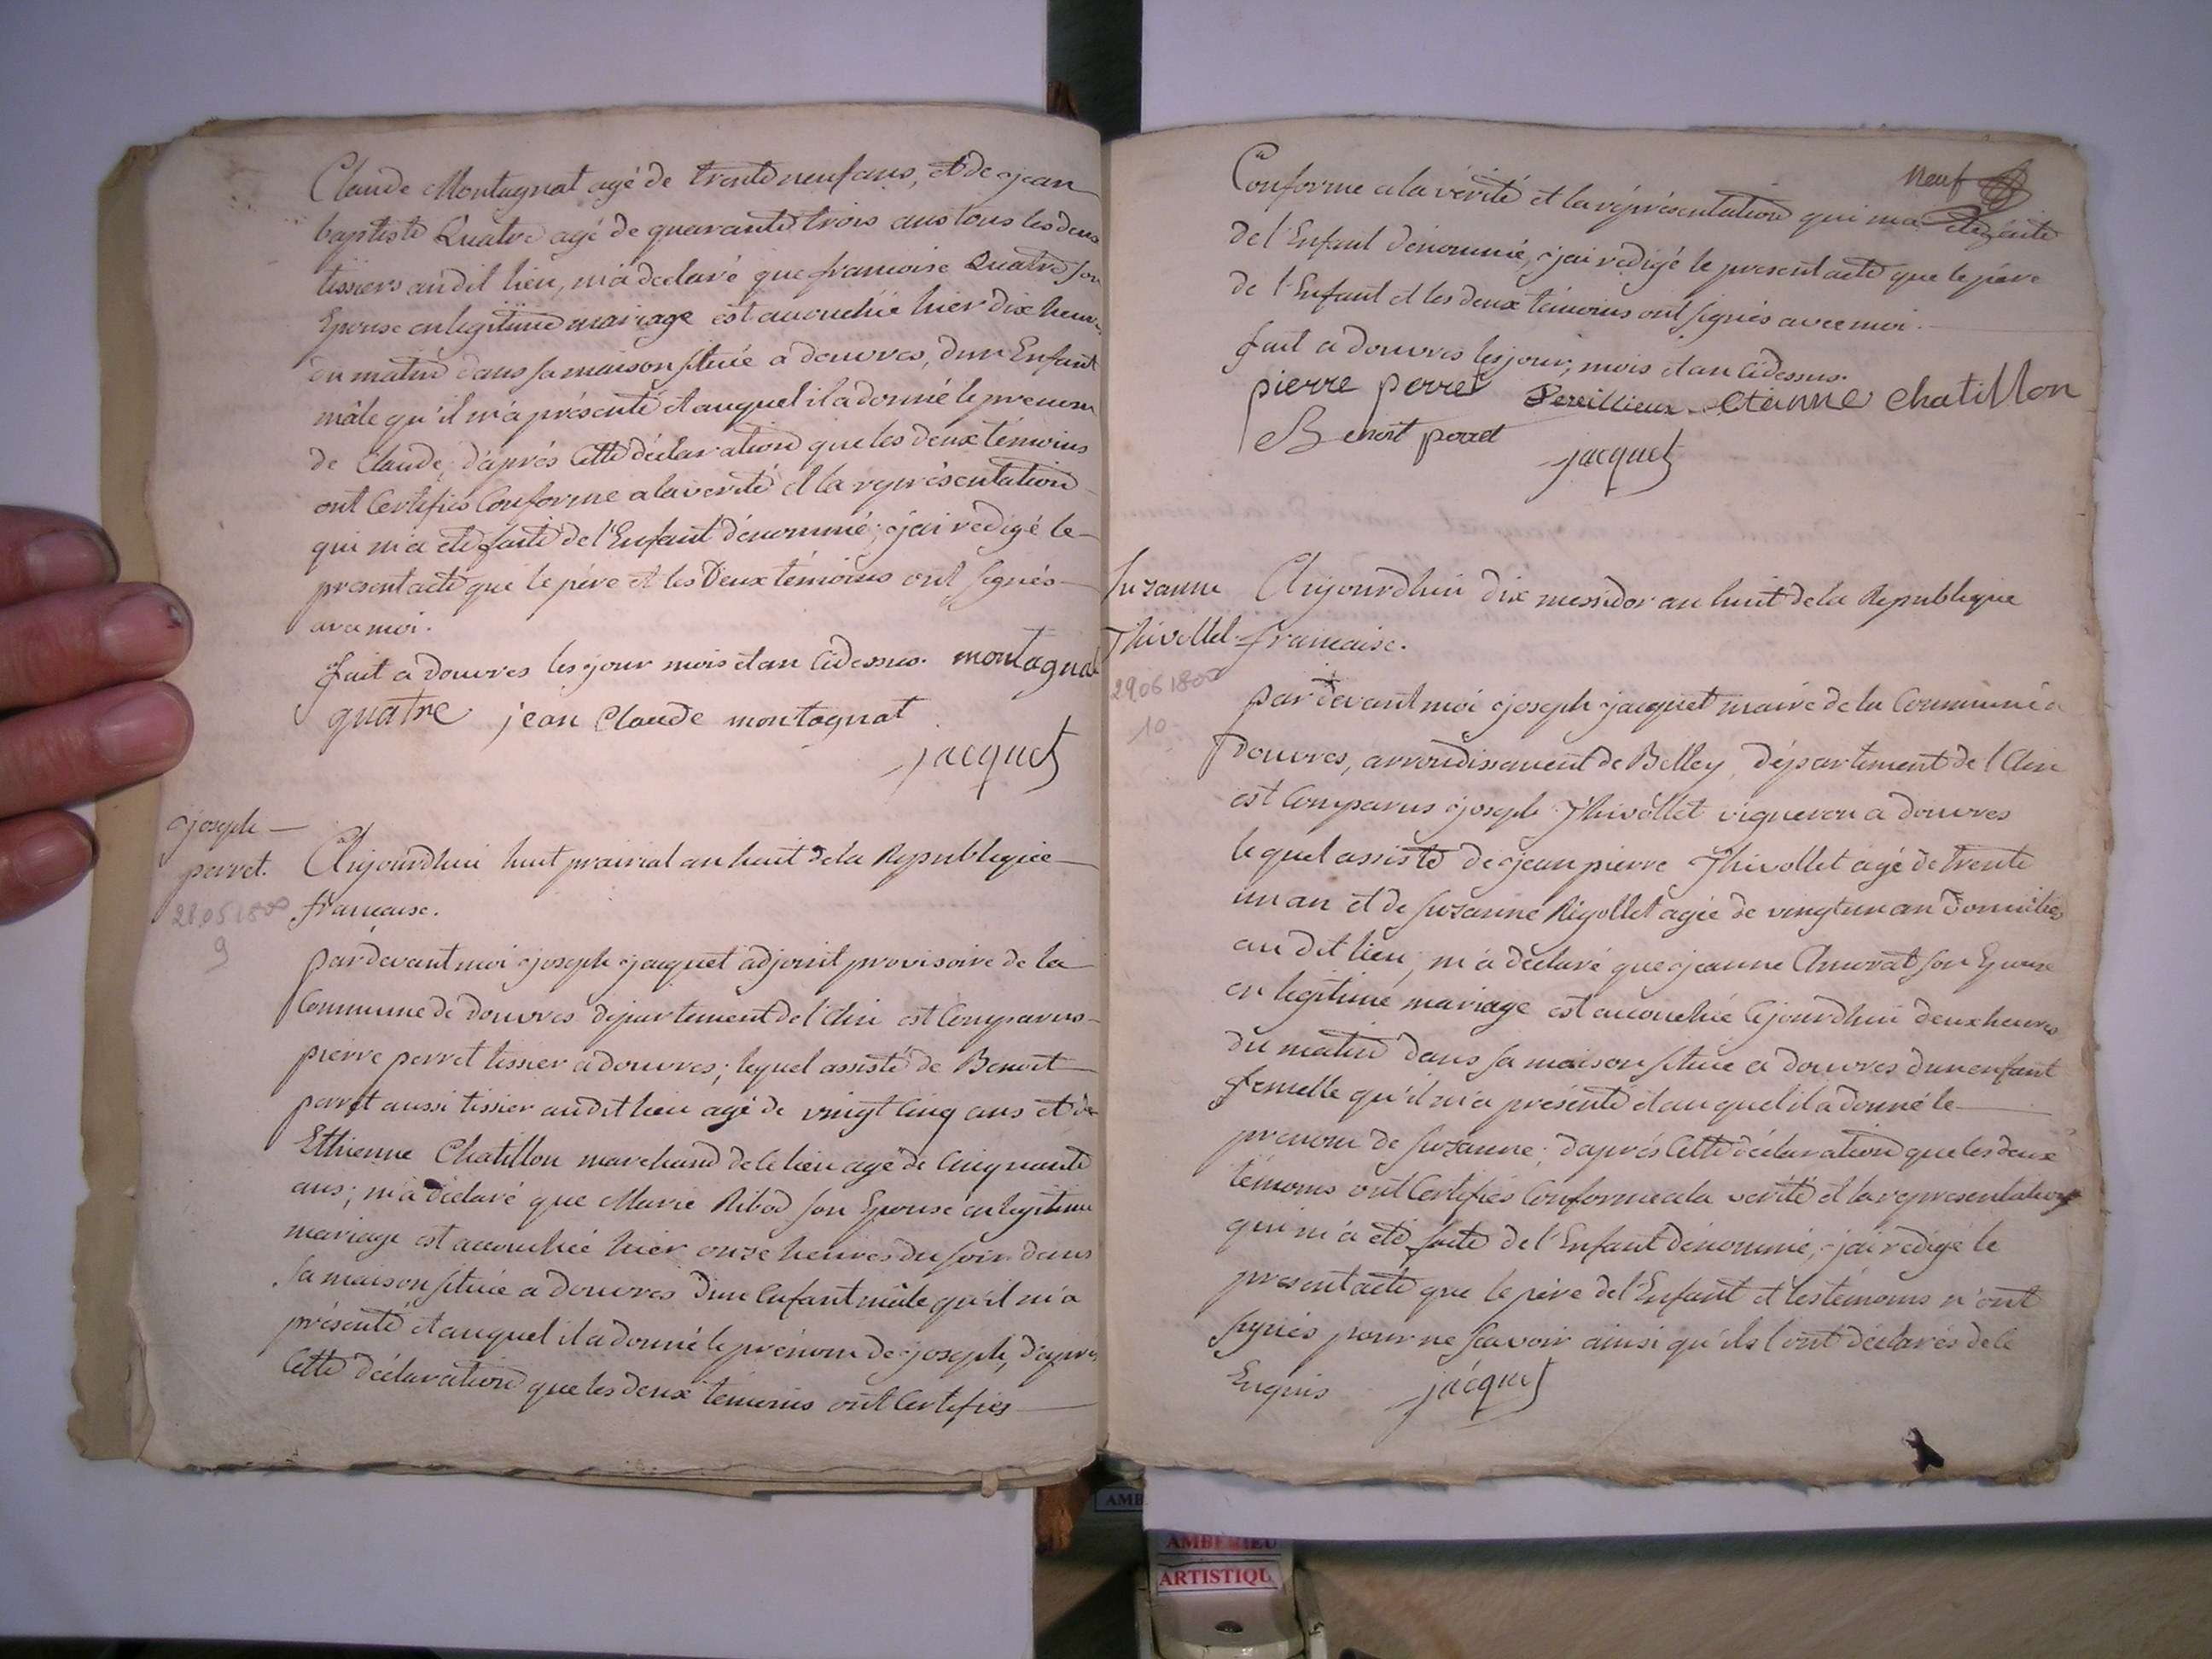 Claude Montagnat agé de trente neuf ans, et de jean
baptiste Quatre agé de quarante trois ans tous les deux
tissiers au dit lieu, m'a déclaré que francoise Quatre son
Epouse en legitime mariage est accouchée hier dix heures
du matin dans sa maison située a douvres, d'un Enfant
mâle qu'il m'a présenté et auquel il a donné le prenom
de Claude; d'aprés Cette déclaration que les deux témoins
ont Certifiés Conforme a la verité et la représentation
qui m'a eté faite de l'Enfant dénommé; j'ai redigé le
present acte que le pére et les Deux témoins ont signés
avec moi.
fait a douvres les jour mois et an Cidessus. montagnat
quatre jean Claude montagnat
jacquet
joseph
perret.
28.05.1800
9
Aujourdhui huit prairial an huit de la Republique
francaise.
par devant moi joseph jacquet adjoint provisoire de la
Commune de douvres département de l'Ain est Comparus
pierre perret tissier a douvres; lequel assisté de Benoit
perret aussi tissier au dit lieu agé de vingt Cinq ans et de
Ethienne Chatillon marchand de Ce lieu agé de Cinquante
ans; m'a déclaré que Marie Ribod son Epouse en legitime
mariage est accouchée hier onze heures du soir dans
sa maison située a douvres d'un Enfant mâle qu'il m'a
présenté et auquel il a donné le prénom de joseph, d'aprés
Cette déclaration que les deux témoins ont Certifiés
Neuf
Conforme a la vérité et la répresentation qui m'a eté faite
de l'Enfant dénommé, j'ai redigé le present acte que le pére
de l'Enfant et les deux témoins ont signés avec moi.
fait a douvres les jour, mois et an Cidessus.
pierre perret Pereillieux etienne chatillon
Benoit perret
jacquet
Suzanne
Thivollet
29.06.1800
10
Aujourdhui dix messidor an huit de la Republique
francaise.
par devant moi joseph jacquet maire de la Commune de
douvres, arrondissement de Belley, département de l'Ain
est Comparus joseph Thivollet vigneron a douvres
lequel assisté de jean pierre Thivollet agé de trente
un an et de suzanne Rigollet agée de vingt un an domiciliés
au dit lieu, m'a déclaré que jeanne Amorat son Epouse
en legitime mariage est accouchée Cejourdhui deux heures
du matin dans sa maison située a douvres d'un enfant
femelle qu'il m'a présenté et auquel il a donné le
prenom de suzanne; d'aprés Cette déclaration que les deux
témoins ont Certifiés Conforme a la verité et la representation
qui m'a eté faite de l'Enfant dénommé, j'ai redigé le
present acte que le pére de l'Enfant et les témoins n'ont
signés pour ne scavoir ainsi qu'ils l'ont déclarés de Ce
Enquis jacquet
AMB
AMBERIEU
ARTISTIQU